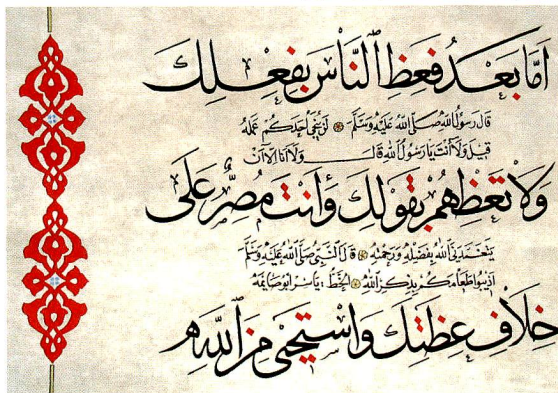 أما بعد فعظ الناس بفعلك
قال رسول الله صلى الله عليه وسلم لن ينجي أحدكم عمله
قيل ولا أنت يا رسول الله قال ولا أنا إلا أن
ولا تعظهم بقولك وأنت مصر على
يتغمدني الله بفضله ورحمته قال النبي صلى الله عليه وسلم
أذيبوا طعامكم بذكر الله الخط: ياسر أبو صايمه
خلاف عظتك واستحيى من الله